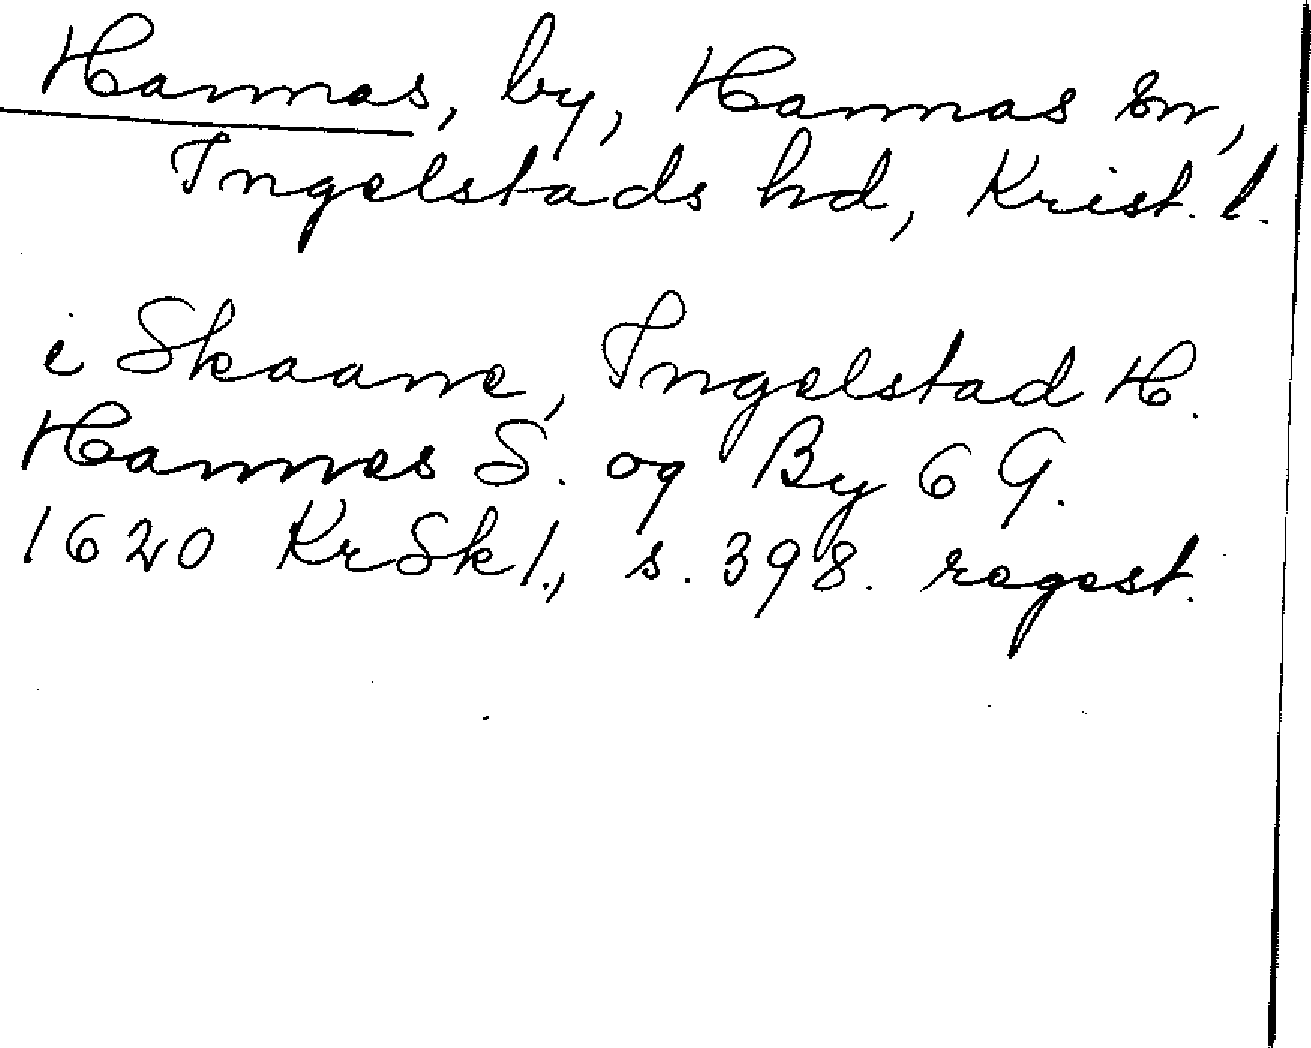 Hannas, by, Hannas sn,
Ingelstads hd, Krist. l.
i Skaane, Ingelstad H.
Hannes S. og By 6 G.
1620 KrSk 1., s. 398. regest.